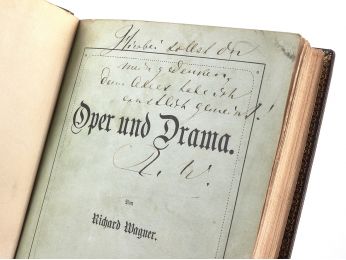 Hierbei sollst du
mein gedenken,
denn dieses habe ich
ernstlich gemeint!
Oper und Drama.
R. W.
Von
Richard Wagner.